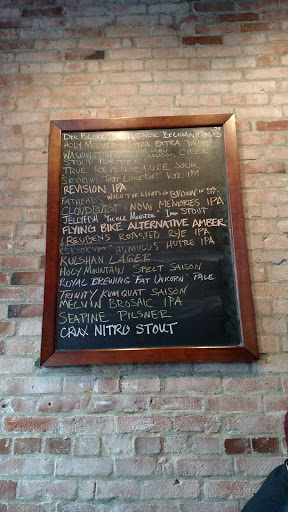 HOLY MOUNTAIN EXTRA
WASHINGTON CIDER
STOUP PORTER
TRUE REVERENCE SOUR
SKOOKUM RYE IPA
REVISION IPA
FATHEADS WHEN THE LIGHTS GO BROWN
CLOUDBURST NOW MEMORIES IPA
JELLYFISH TICKLE MONSTER IMP STOUT
FLYING BIKE ALTERNATIVE AMBER
REUBENS ROASTED RYE IPA
HUMULUS IPA
KULSHAN LAGER
HOLY MOUNTAIN SPELT SAISON
ROYAL BREWING FAT UNICORN PALE
TRINITY KUMQUAT SAISON
MELVIN BROSAIC IPA
SEAPINE PILSNER
CRUX NITRO STOUT